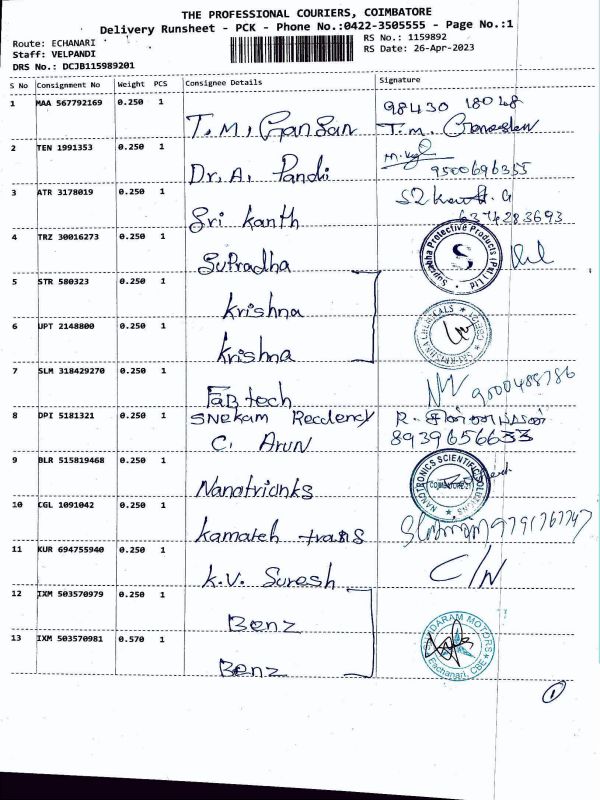 THE PROFESSIONAL COURIERS, COIMBATORE
Delivery Runsheet - PCK - Phone No.:0422-3505555 - Page No.:1
Route: ECHANARI
Staff: VELPANDI
DRS No.: DCJB115989201
RS No.: 1159892
RS Date: 26-Apr-2023
S No Consignment No Weight PCS Consignee Details Signature
1 MAA 567792169 0.250 1 98430 18048
T.M. Gansan T.m.
2 TEN 1991353 0.250 1
Dr. A. Pandi 9500696355
3 ATR 3178019 0.250 1
Sri Kanth 6374283693
4 TRZ 30016273 0.250 1 Suprabha Protective Products (Pvt.) Ltd
Supradha
5 STR 580323 0.250 1
Krishna
6 UPT 2148800 0.250 1 SRI KRISHNA CHEMICALS
Krishna
7 SLM 318429270 0.250 1
Fab tech 9500488786
8 DPI 5181321 0.250 1 R.
Snekam Recdency
C. Arun 8939656633
9 BLR 515819468 0.250 1 NANOTRONICS SCIENTIFIC SOLUTIONS
COIMBATORE-21
Nanotrionks
10 CGL 1091042 0.250 1
Kamateh trans 9791767747
11 KUR 694755940 0.250 1 C/N
K.V. Suresh
12 IXM 503570979 0.250 1
Benz
13 IXM 503570981 0.570 1 SUNDARAM MOTORS
Eachanari, CBE
Benz
1